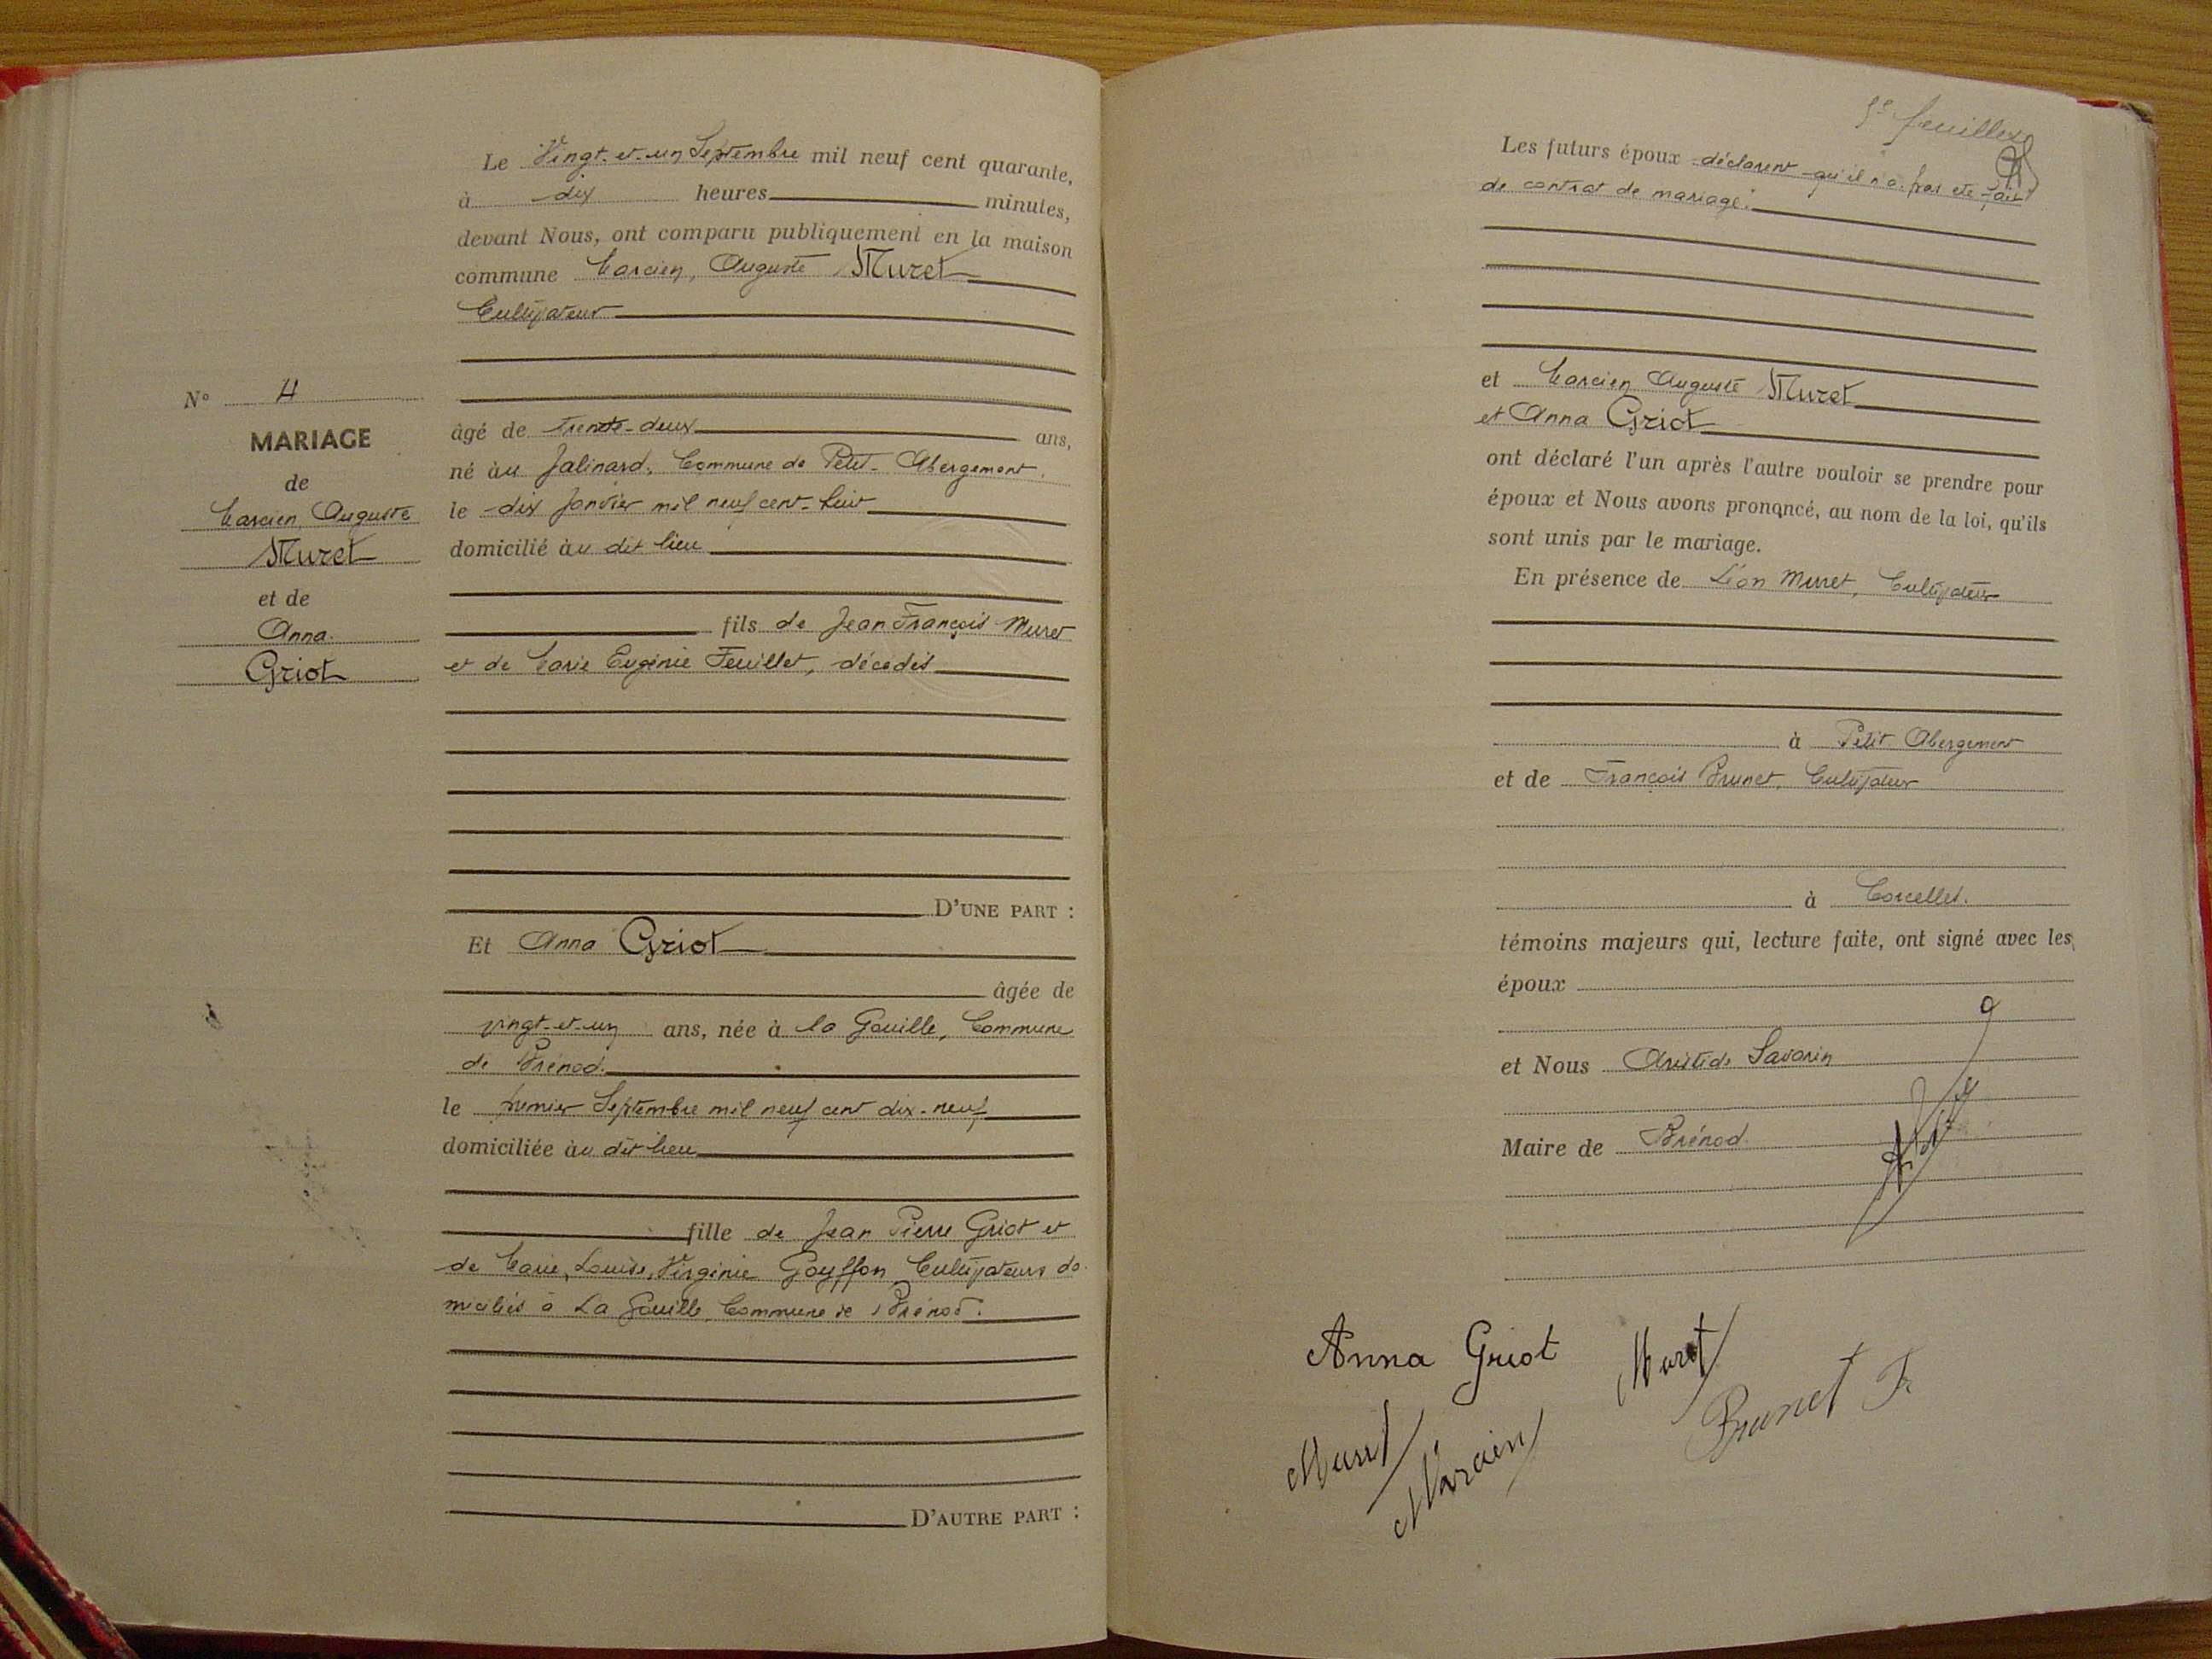 Le Vingt-et-un Septembre mil neuf cent quarante,
à dix heures minutes,
devant Nous, ont comparu publiquement en la maison
commune Marcien, Auguste Muret
Cultivateur
N° 4
MARIAGE
de
Marcien Auguste
Muret
et de
Anna
Griot
âgé de trente-deux ans,
né au Jalinard, Commune de Petit-Abergement.
le dix Janvier mil neuf cent-huit
domicilié au dit lieu
fils de Jean François Muret
et de Marie Eugénie Feuillet, décédés
D'UNE PART :
Et Anna Griot
âgée de
vingt-et-un ans, née à la Gouille, Commune
de Brénod.
le premier Septembre mil neuf cent dix-neuf
domiciliée au dit lieu
fille de Jean Pierre Griot et
de Marie, Louise, Virginie Gouffon Cultivateurs do-
miciliés à La Gouille, Commune de Brénod.
D'AUTRE PART :
feuillet
Les futurs époux déclarent qu'il n'a pas été fait
de contrat de mariage.
et Marcien Auguste Muret
et Anna Griot
ont déclaré l'un après l'autre vouloir se prendre pour
époux et Nous avons prononcé, au nom de la loi, qu'ils
sont unis par le mariage.
En présence de Léon Muret, Cultivateur
à Petit Abergement
et de François Brunet, Cultivateur
à Corcelles.
témoins majeurs qui, lecture faite, ont signé avec les
époux
et Nous Aristide Savarin
Maire de Brénod
Anna Griot Muret
Brunet Fr
Muret
Marcien